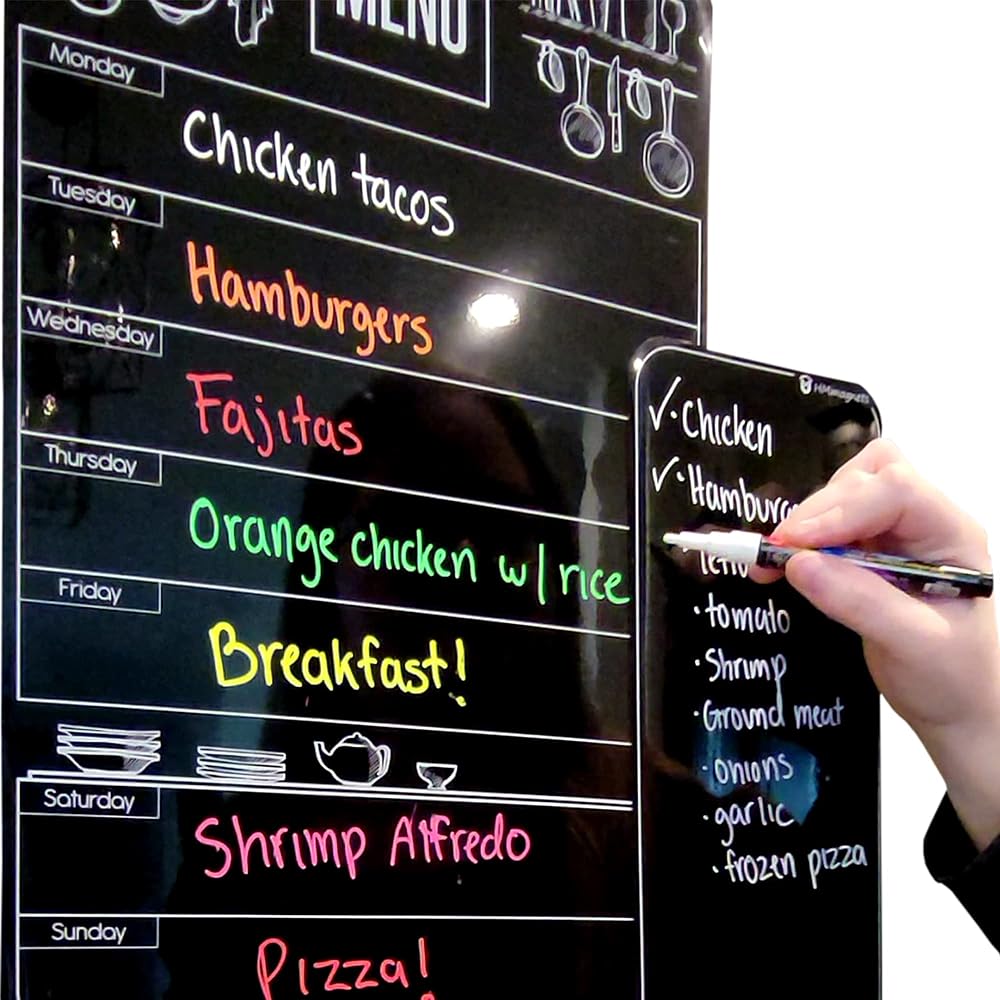 MENU
Monday
Chicken tacos
Tuesday
Hamburgers
Wednesday
Fajitas
Thursday
Orange chicken w/ rice
Friday
Breakfast!
Saturday
Shrimp Alfredo
Sunday
Pizza!
HMmagnets
✓·Chicken
✓·Hamburg
·tomato
·Shrimp
·Ground meat
·onions
·garlic
·frozen pizza